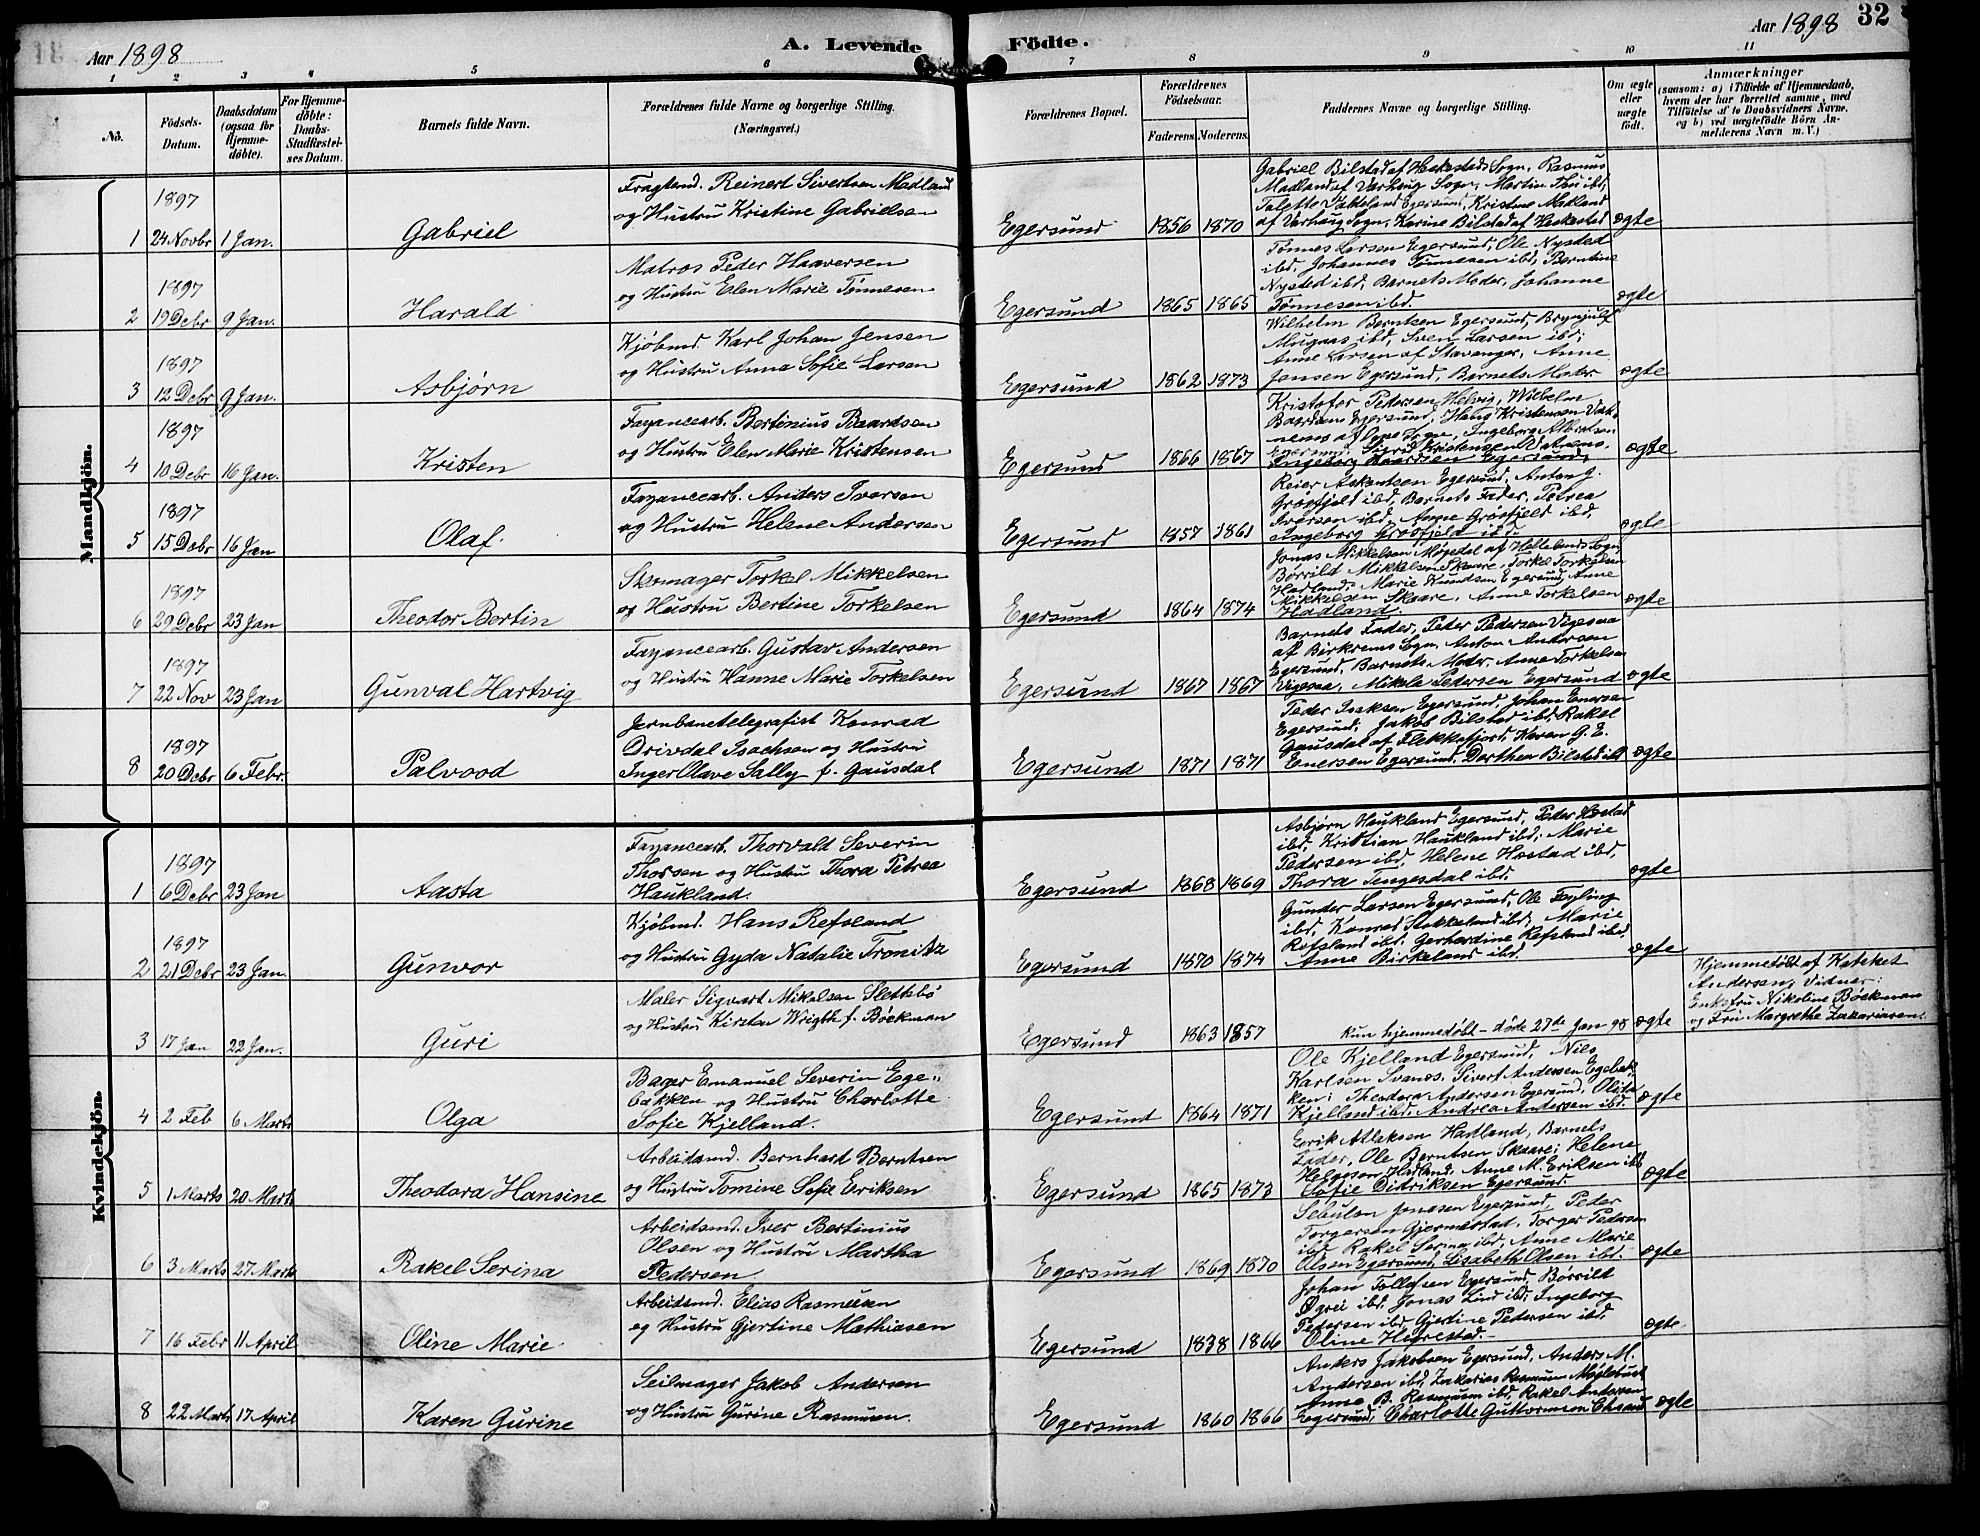 Aar 1898
A. Levende Födte.
Aar 1898
32
1 2 3 4 5 6 7 8 9 10 11
No.
Födsels-Datum.
Daabsdatum (ogsaa for Hjemme-döbte).
For Hjemme-döbte: Daabs-Stadfæstel-ses Datum.
Barnets fulde Navn.
Forældrenes fulde Navne og borgerlige Stilling.
(Næringsvei.)
Forældrenes Bopæl.
Forældrenes Födselsaar.
Faderens. Moderens.
Faddernes Navne og borgerlige Stilling.
Om ægte eller uægte födt.
Anmærkninger
(saasom: a) i Tilfælde af Hjemmedaab, hvem der har forrettet samme, med Tilföielse af to Daabsvidners Navne, og b) ved uægtefödte Börn An-melderens Navn m. V.)
Mandkjön.
1 1897 24 Novbr 1 Jan. Gabriel
Fragtemd. Reinert Sivertsen Madland
og Hustru Kristine Gabrielsen
Egersund 1856 1870
Gabriel Bilstad af Heskestads Sogn, Rasmus
Madland af Varhaug Sogn, Martin Thu ibd,
Talette Egersund, Kristine Madland
af Varhaug Sogn, Karine Bilstad af Heskestad
ægte
2 1897 19 Debr 9 Jan. Harald
Matros Peder Haaversen
og Hustru Elen Marie Tønnesen
Egersund 1865 1865
Tønnes Larsen Egersund, Ole Nysted
ibd, Johannes Tønnesen ibd, Berntine
Nysted ibd, Barnets Moder, Johanne
Tønnesen ibd.
ægte
3 1897 12 Debr 9 Jan. Asbjørn
Kjøbmd. Karl Johan Jensen
og Hustru Anna Sofie Larsen
Egersund 1862 1873
Wilhelm Berntsen Egersund, Brynjulf
ibd, Sven Larsen ibd;
Anne Larsen af Stavanger, Anne
Jensen Egersund, Barnets Moder
ægte
4 1897 10 Debr 16 Jan. Kristen
Fayancearb. Bertinius Baardsen
og Hustru Elen Marie Kristensen
Egersund 1866 1867
Kristofer Pedersen Helvig, Wilhelm
Baardsen Egersund, Hans Kristensen Vat-
nemo af Sogn, Ingeborg Albretsen
Egersund, Sigrid Kristensen Vatnemo,
Ingeborg Baardsen Egersund.
ægte
5 1897 15 Debr 16 Jan Olaf.
Fayancearb. Anders Iversen
og Hustru Helene Andersen
Egersund 1857 1861
Reier Askantsen Egersund, Anton J.
Grøsfjeld ibd, Barnets Fader, Petrea
Iversen ibd, Anne Grøsfjeld ibd,
Ingeborg Grøsfjeld ibd.
ægte
6 1897 29 Debr 23 Jan Theodor Bertin
Skomager Torkel Mikkelsen
og Hustru Bertine Torkelsen
Egersund 1864 1874
Jonas Mikkelsen Møgedal af Hellelands Sogn,
Børrild Mikkelsen Skaare, Torkel Torkelsen
Hadland, Marie Knudsen Egersund, Anne
Mikkelsen Skaare, Anne Torkelsen
Hadland.
ægte
7 1897 22 Nov 23 Jan Gunval Hartvig
Fayancearb. Gustav Andersen
og Hustru Hanne Marie Torkelsen
Egersund 1867 1867
Barnets Fader, Peder Pedersen Vigesaa
af Birkrems Sogn, Anton Andersen
Egersund, Barnets Moder, Anne Torkelsen
Vigesaa, Mikala Pedersen Egersund
ægte
8 1897 20 Debr 6 Febr. Palvood
Jernbanetelegrafist Konrad
Drivdal Isachsen og Hustru
Inger Olave Sally f. Gausdal
Egersund 1871 1871
Peder Isaksen Egersund, Johan Enersen
Egersund, Jakob Bilstad ibd, Rakel
Gausdal af Flekkefjord, Karen G. E.
Enersen Egersund, Dorthea Bilstad ibd
ægte
Kvindekjön.
1 1897 6 Debr 23 Jan Aasta
Fayancearb. Thorvald Severin
Thorsen og Hustru Thora Petrea
Haukland.
Egersund 1868 1869
Asbjørn Haukland Egersund, Peder Hæstad
ibd, Kristian Haukland ibd; Marie
Pedersen ibd, Helene Hæstad ibd,
Thora Tengesdal ibd.
ægte
2 1897 21 Debr 23 Jan. Gunvor
Kjøbmd. Hans Refsland
og Hustru Gyda Natalie Tronitz
Egersund 1870 1874
Gunder Larsen Egersund, Ole Fogling
ibd, Konrad Stokkeland ibd, Marie
Refsland ibd, Gerhardine Refsland ibd,
Anne Birkeland ibd.
ægte
3 17 Jan 22 Jan. Guri
Maler Sigvart Mikalsen Slettebö
og Hustru Kirsten Wrigth f. Bøckman
Egersund 1863 1857
Kun hjemmedøbt – døde 27de Jan 98 ægte
Hjemmedøbt af Kateket
Andersen; Vidner:
Enkefru Nikoline Bøckman
og Fru Margrethe Zakariasen.
4 2 Feb 6 Marts Olga
Bager Emanuel Severin Ege-
bakken og Hustru Charlotte
Sofie Kjelland.
Egersund 1864 1871
Ole Kjelland Egersund, Nils
Karlsen Svanes, Sivert Andersen Egebak-
ken; Theodora Andersen Egersund, Olida
Kjelland ibd, Andrea Andersen ibd.
ægte
5 1 Marts 20 Marts Theodora Hansine
Arbeidsmd. Bernhard Berntsen
og Hustru Tomine Sofie Eriksen
Egersund 1865 1873
Eerik Atleksen Hadland, Barnets
Fader, Ole Berntsen Skaare; Helene
Helgesen Hadland, Anne M. Eriksen ibd
Sofie Didriksen Egersund
ægte
6 3 Marts 27 Marts Rakel Serina
Arbeidsmd. Iver Bertinius
Olsen og Hustru Martha
Pedersen
Egersund 1869 1870
Sebulon Jonasen Egersund, Peder
Torgersen Gjermestad, Torger Pedersen
ibd, Rakel Serina ibd, Anne Marie
Olsen Egersund, Lisabeth Olsen ibd.
ægte
7 16 Febr 11 April Oline Marie
Arbeidsmd. Elias Rasmussen
og Hustru Gjertine Mathiasen
Egersund 1838 1866
Johan Tollefsen Egersund, Børrild
Øgrei ibd, Jonas Lind ibd; Ingeborg
Pedersen ibd, Gjertine Pedersen ibd,
Oline Hegrestad.
ægte
8 22 Marts 17 April Karen Gurine
Seilmager Jakob Andersen
og Hustru Gurine Rasmussen.
Egersund 1860 1866
Anders Jakobsen Egersund, Anders M.
Andersen ibd, Zakarias Rasmussen
Anne B. Rasmussen ibd, Rakel Andersen
Egersund, Charlotte Guttormsen
ægte